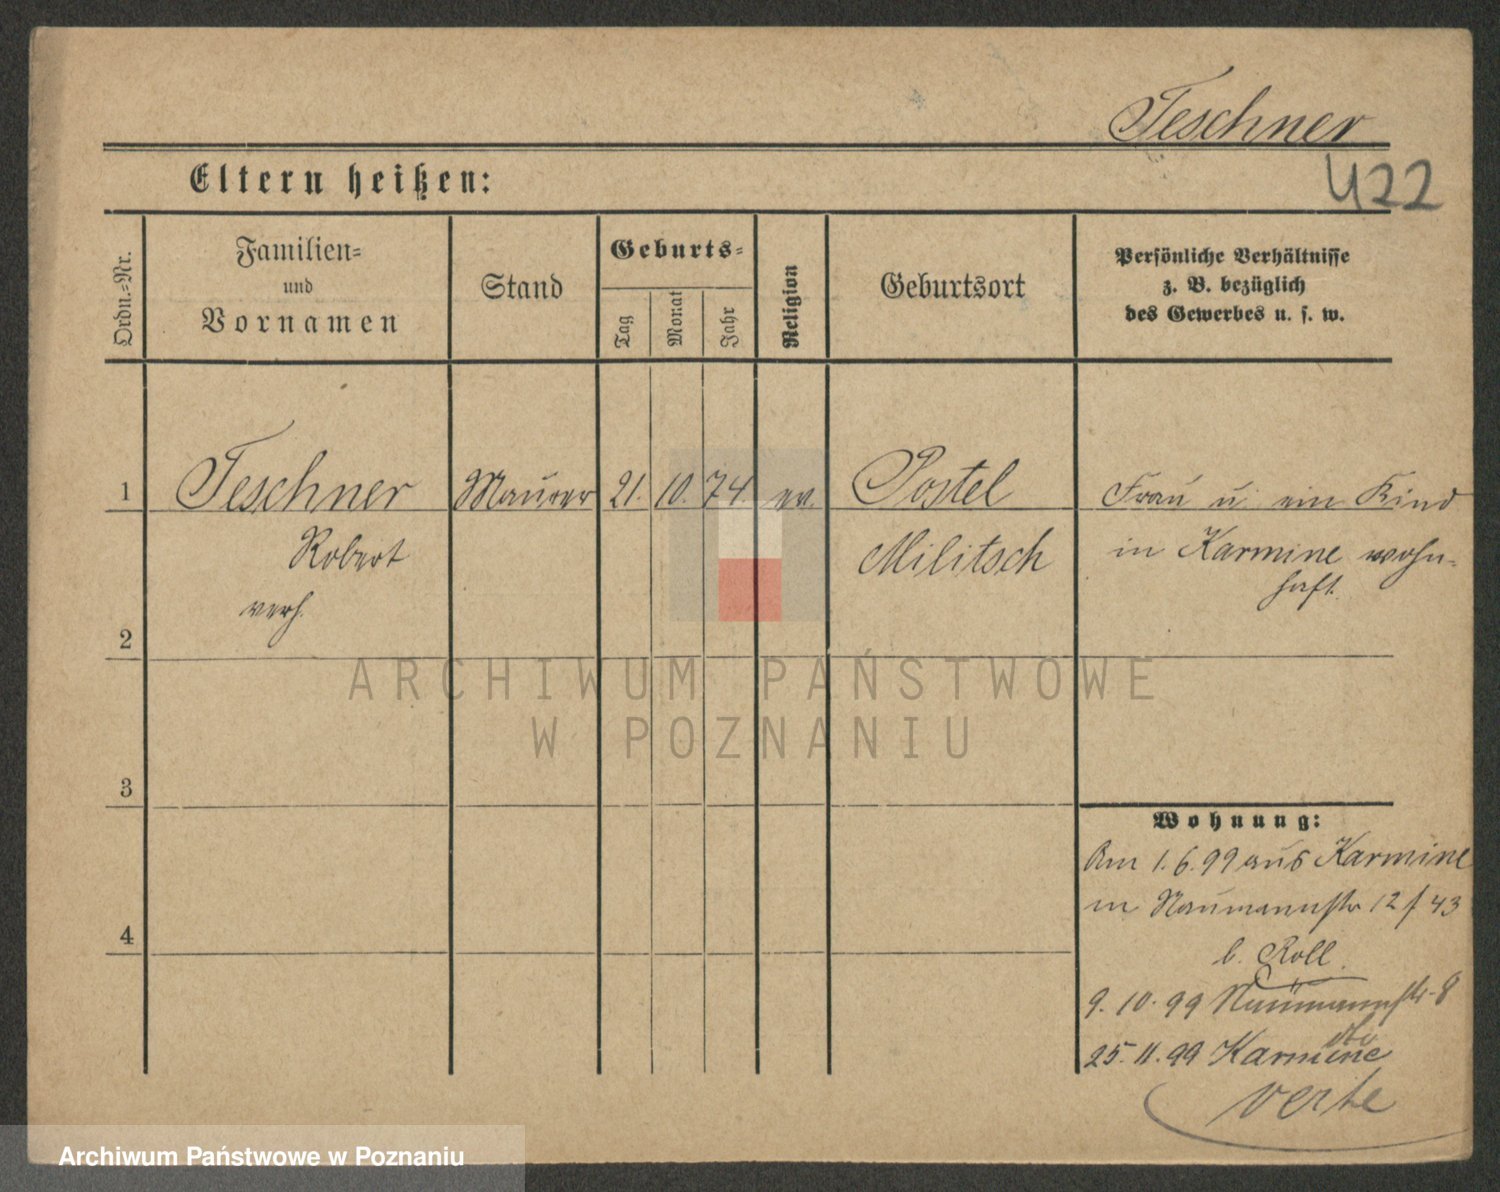 Teschner
Eltern heißen:
422
Ordn.-Nr.
Familien-
und
Vornamen
Stand
Geburts-
Tag
Monat
Jahr
Religion
Geburtsort
Persönliche Verhältnisse
z. B. bezüglich
des Gewerbes u. s. w.
1 Teschner Maurer 21. 10. 74. ev. Postel Frau u. ein Kind
Robert Militsch in Karmine wohn-
haft.
verh.
2
ARCHIWUM PAŃSTWOWE
W POZNANIU
3
Wohnung:
Am 1.6.99 aus Karmine
in Naumannstr 12 / 43
b. Roll
4
9.10.99 Naumannstr. 8
25.11.99 Karmine
verte
Archiwum Państwowe w Poznaniu